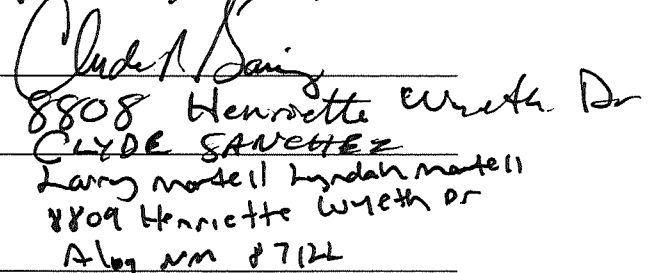 Clyde R
8808 Henriette Wyeth Dr
CLYDE SANCHEZ
Larry Martell Lyndah Martell
8809 Henriette Wyeth Dr
Albq NM 87122